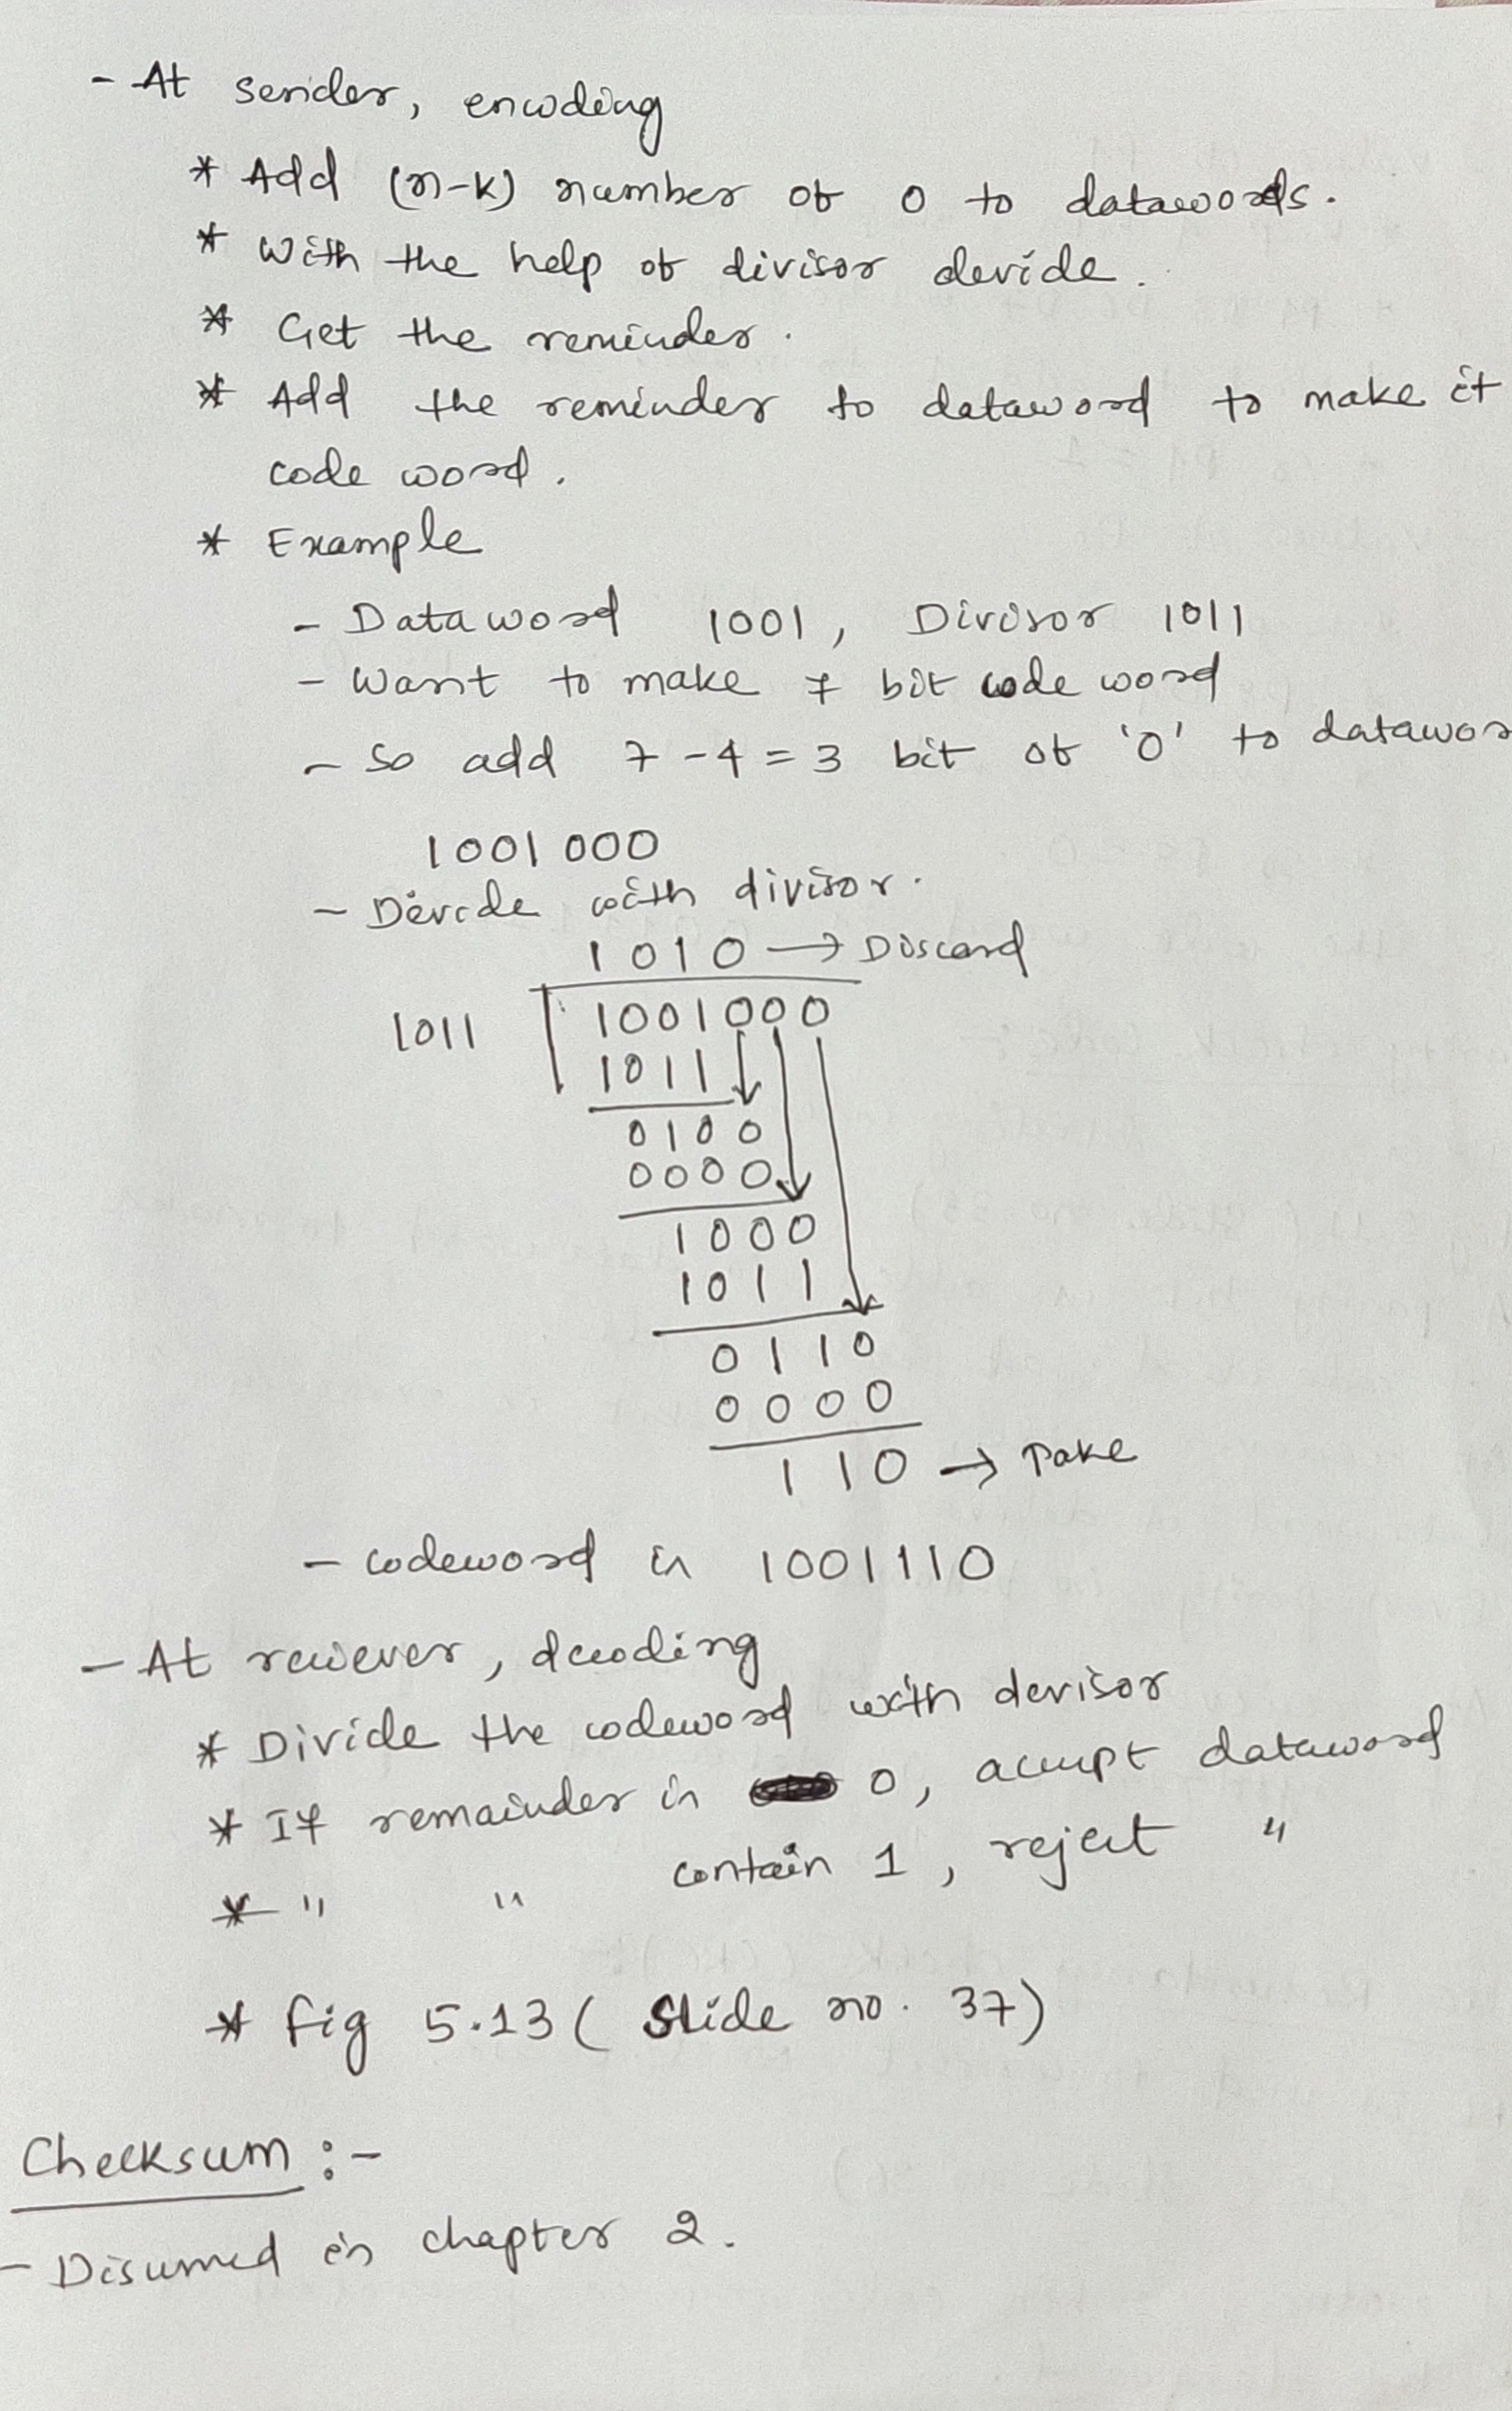 - At sender, encoding
* Add (n-k) number of 0 to datawords.
* With the help of divisor devide.
* Get the reminder.
* Add the reminder to dataword to make it
code word.
* Example
- Dataword 1001, Divisor 1011
- Want to make 7 bit code word
- So add 7-4=3 bit of '0' to datawor
1001 000
- Devide with divisor.
1010 → Discard
1011 1001000
1011
0100
0000
1000
1011
0110
0000
110 → Take
- codeword is 1001110
- At reciever, decoding
* Divide the codeword with devisor
* If remainder is 0, accept dataword
* " " contain 1, reject "
* fig 5.13 (Slide no. 37)
Checksum :-
- Discussed in chapter 2.